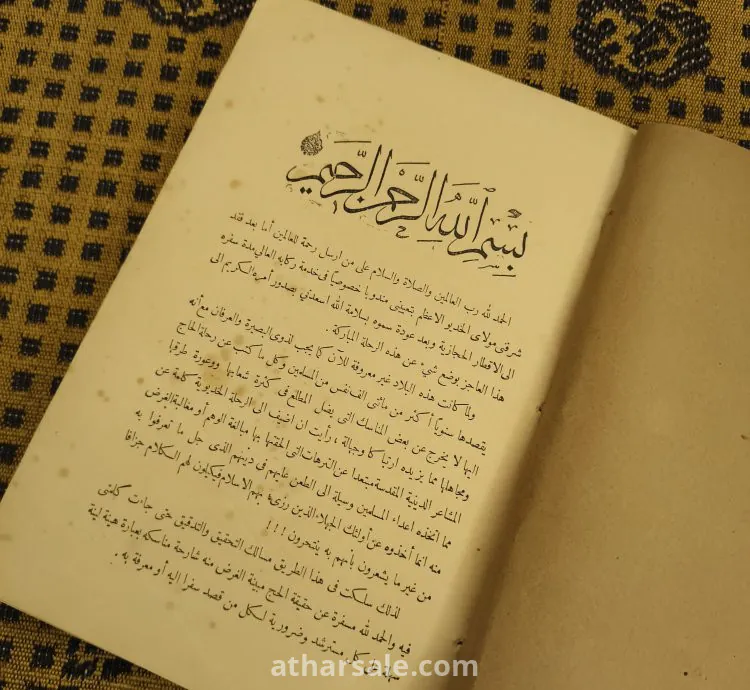 بِسْمِ اللَّهِ الرَّحْمٰنِ الرَّحِيمِ
الحمد لله رب العالمين والصلاة والسلام على من ارسل رحمة للعالمين أما بعد فقد
شرفنى مولاى الخديو الاعظم بتعيينى مندوبا خصوصيا فى خدمة ركابه العالى مدة سفره
الى الاقطار الحجازية وبعد عودة سموه بسلامة الله اسعدنى بصدور أمره الكريم الى
هذا العاجز بوضع شىء عن هذه الرحلة المباركة .
ولما كانت هذه البلاد غير معروفة للآن كما يجب لذوى البصيرة والعرفان مع أنه
يقصدها سنويا أكثر من مائتى الف نفس من المسلمين وكل ما كتب عن رحلة الحاج
اليها لا يخرج عن بعض المناسك التى يضل المطلع فى كثرة شعابها ووعورة طرقها
ومجاهلها مما يزيده ارتباكا وجهالة ، رأيت ان اضيف الى الرحلة الخديوية كلمة عن
المشاعر الدينية المقدسة مبتعدا عن الترهات التى ألحقها بها مبالغة الوهم أو مغالبة الغرض
مما اتخذه اعداء المسلمين وسيلة الى الطعن عليهم فى دينهم الذى جل ما تعرفوا به
منه انما أخذوه عن أولئك الجهلاء الذين رزىء بهم الاسلام فيكيلون لهم الكلام جزافا
من غير ما يشعرون بأنهم به ينتحرون ! ! !
لذلك سلكت فى هذا الطريق مسالك التحقيق والتدقيق حتى جاءت كلمتى
فيه والحمد لله مسفرة عن حقيقة الحج مبينة الغرض منه شارحة مناسكه بعبارة هينة لينة
كل مسترشد وضرورية لكل من قصد سفرا اليه أو معرفة به .
atharsale.com